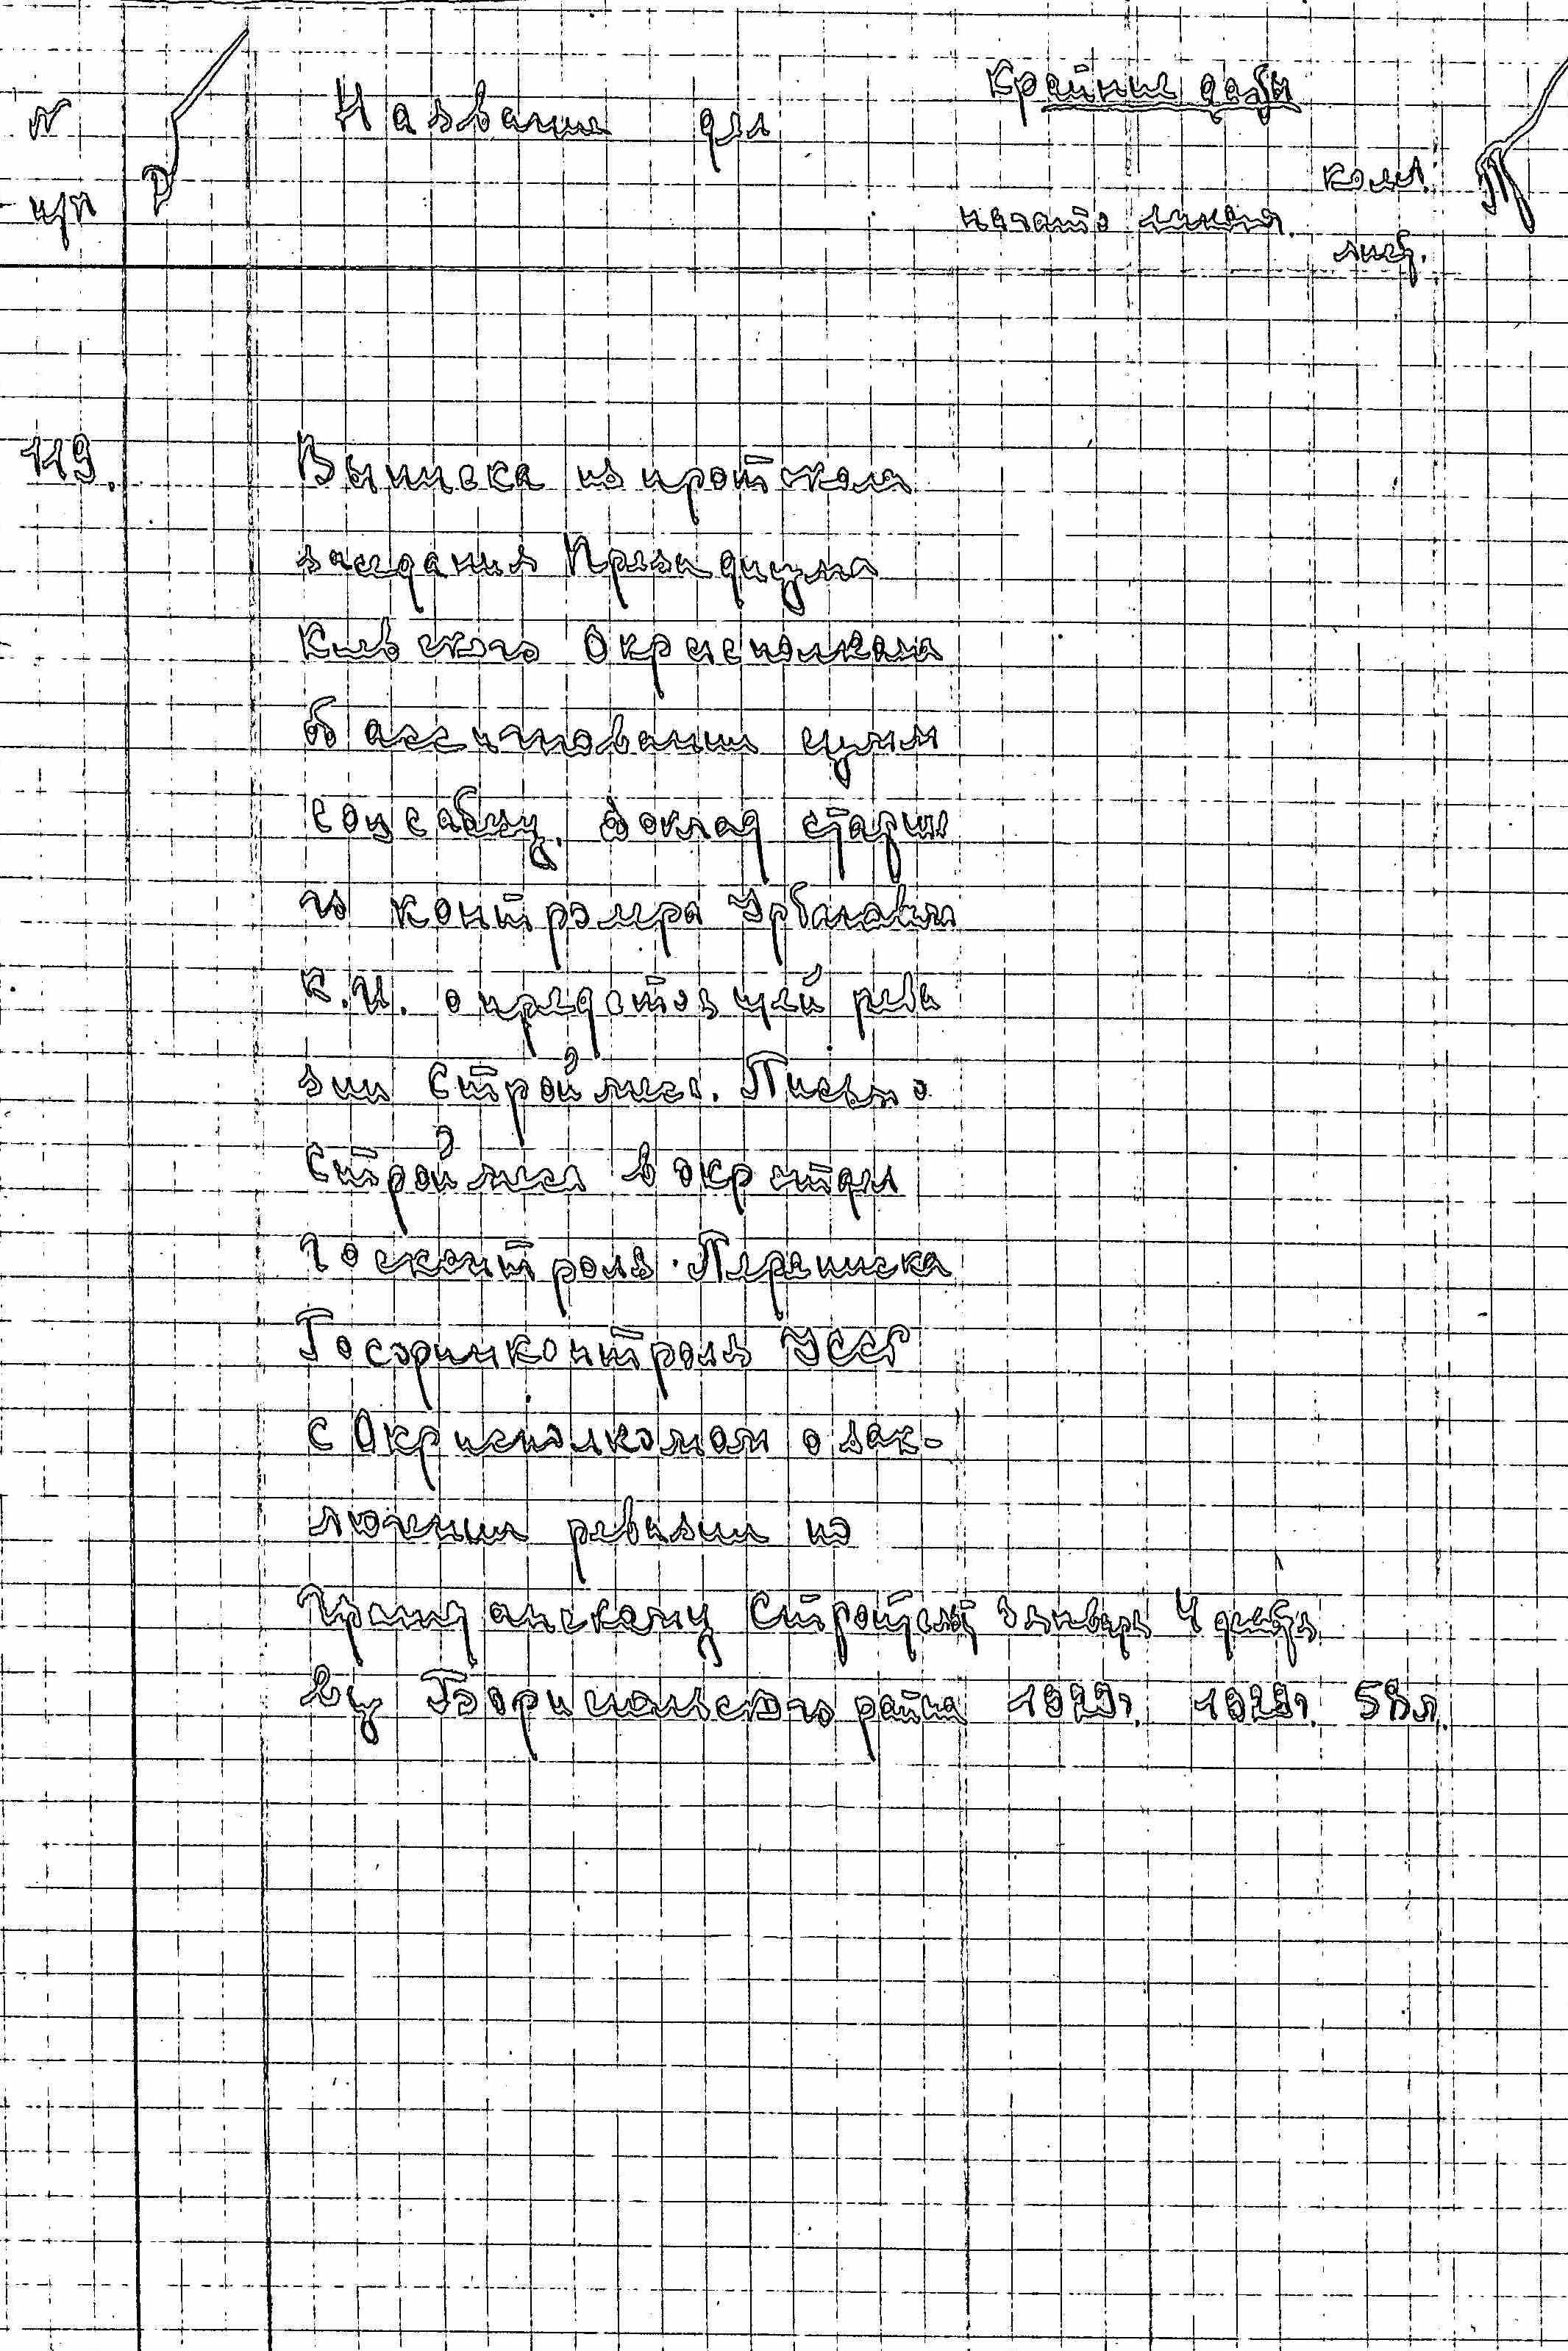 N Название дел Крайние даты
п/п кол.
начато оконч.
лист.
119. Выписка из протокола
заседания Президиума
Киевского Окрисполкома
б ассигновании сумм
Доклад старше
го контролера
К.И. о предстоящей реви
зии Стройлеса. Письмо
Стройлеса в окротдел
госконтроля. Переписка
Госфинконтроля УССР
с Окрисполкомом о зак-
лючении ревизии по
Гражданскому январь 4 декабр
ву Бориспольского района 1929г. 1929г. 58л.